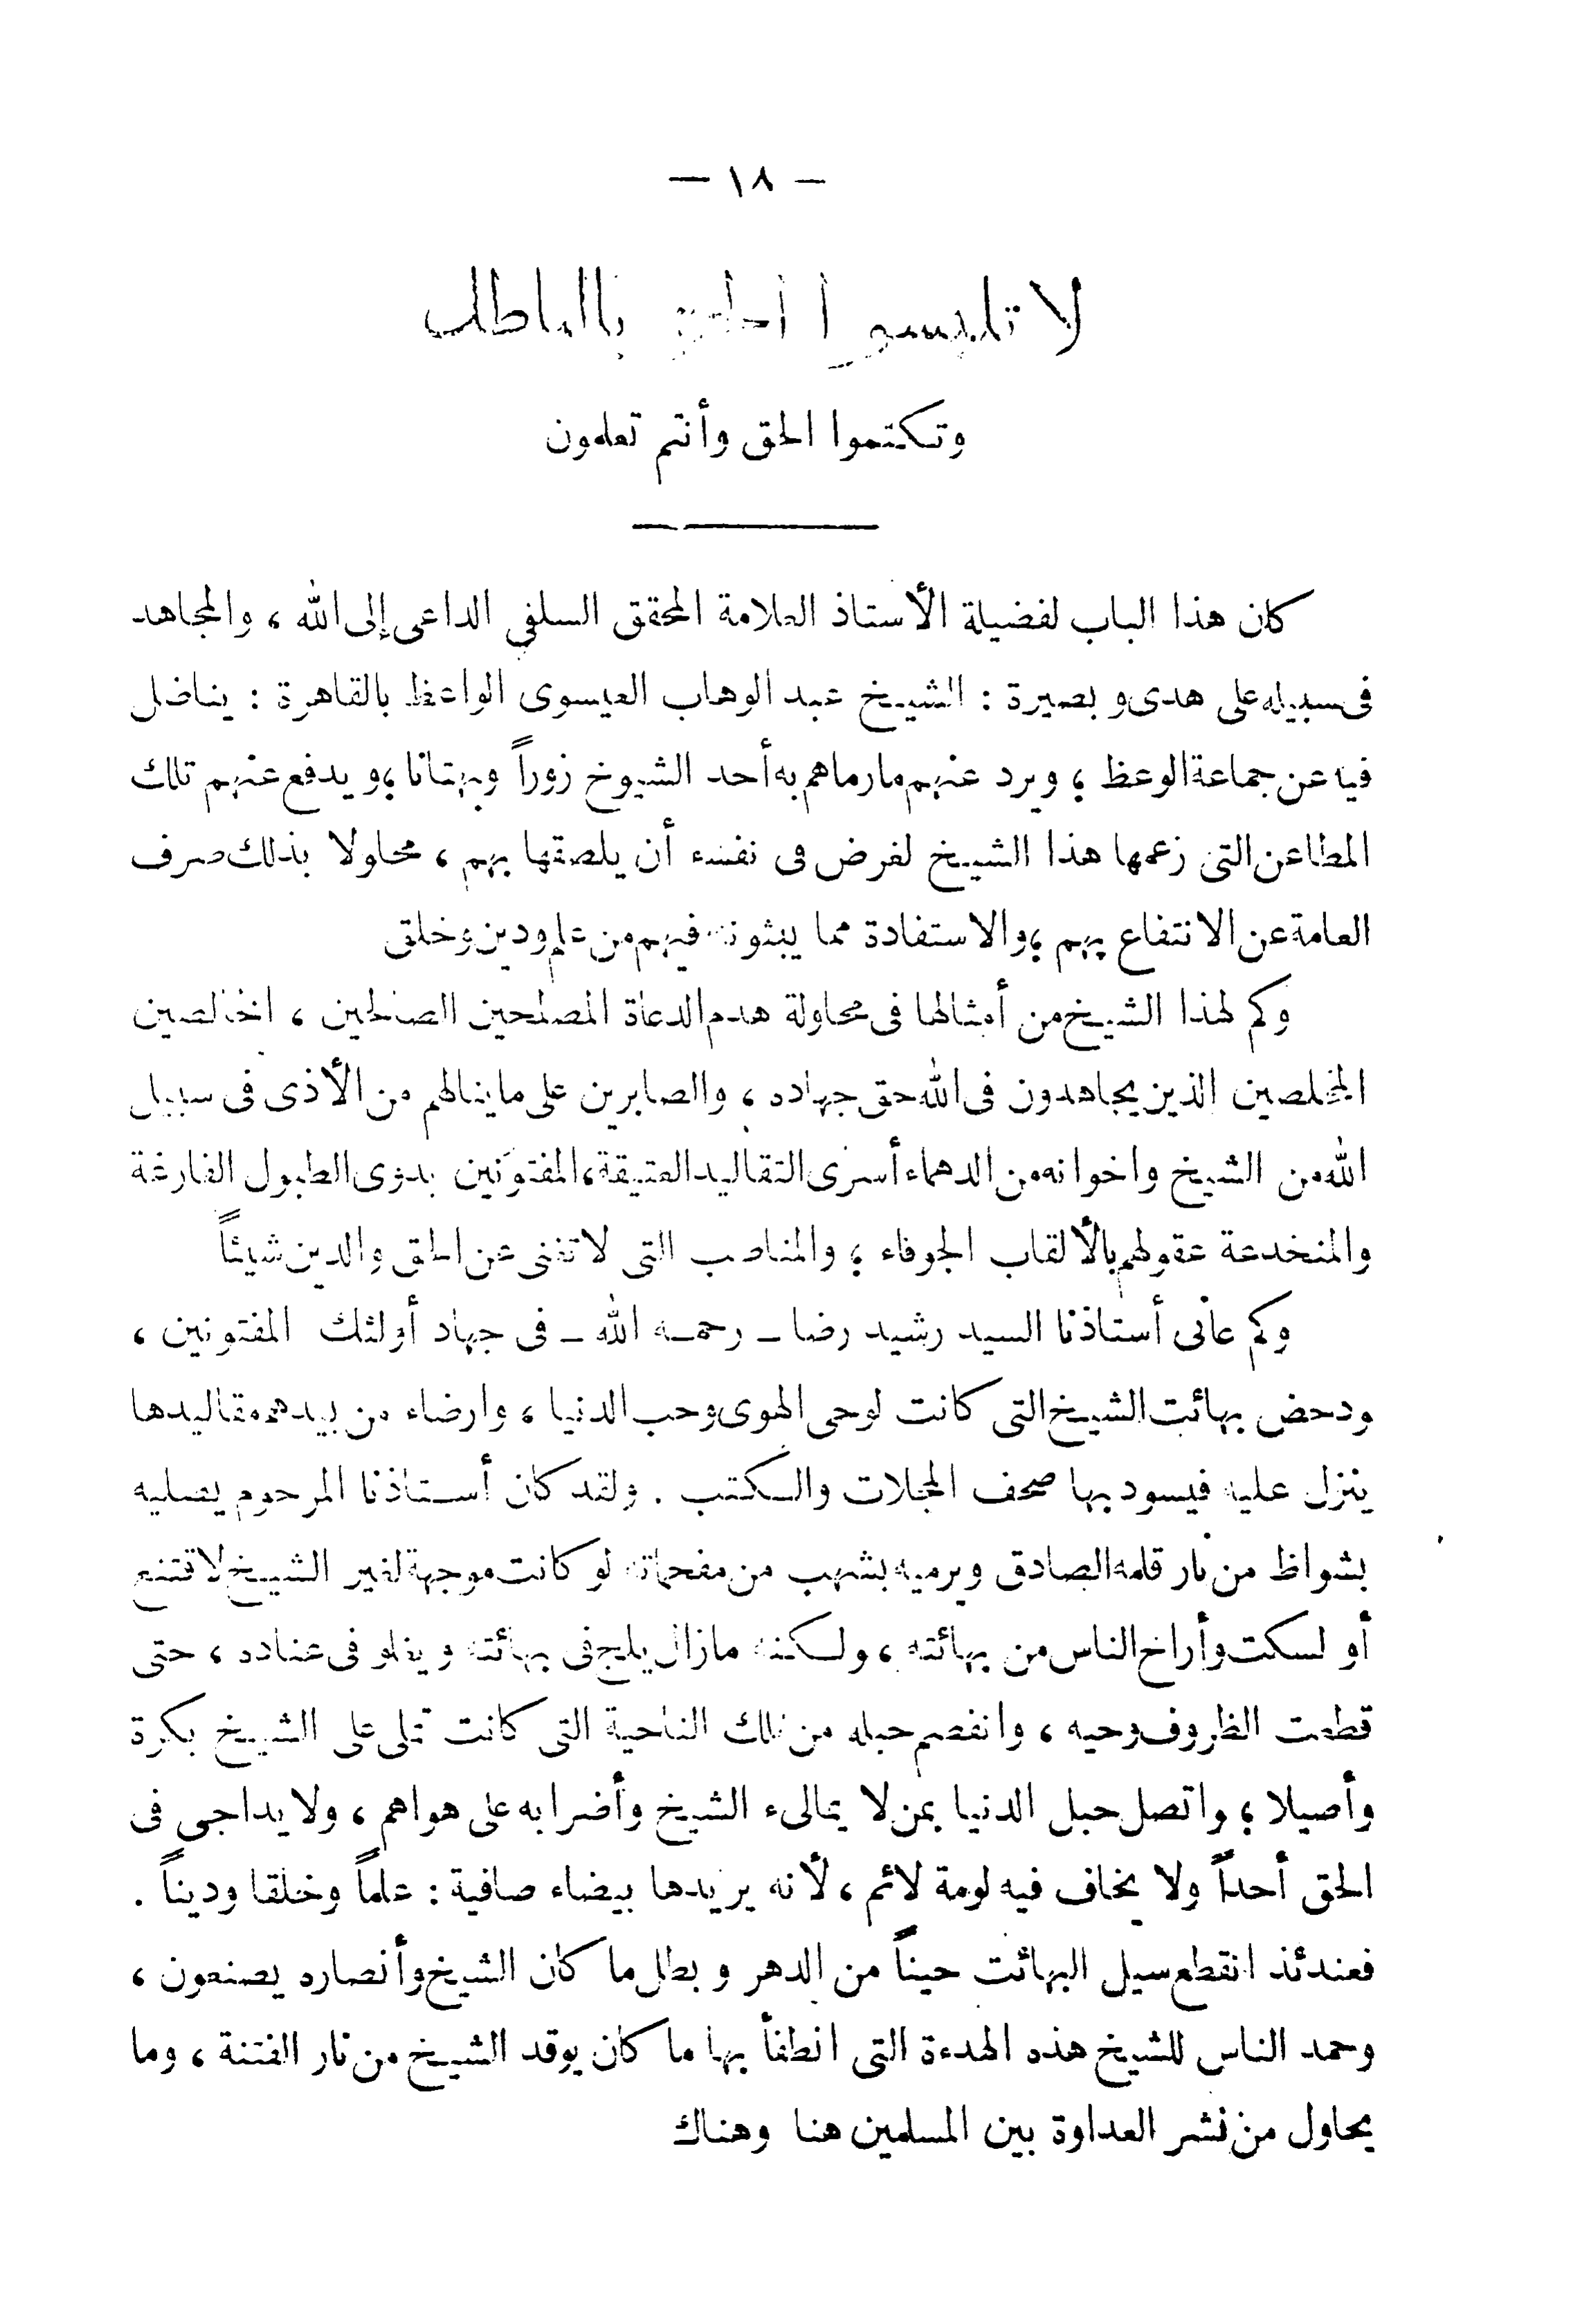 — ١٨ —
لا تلبسوا الحق بالباطل
وتكتموا الحق وأنتم تعلمون
كان هذا الباب لفضيلة الأستاذ العلامة المحقق السلفي الداعى إلى الله ، والمجاهد
فى سبيله على هدى وبصيرة : الشيخ عبد الوهاب العيسوى الواعظ بالقاهرة : يناضل
فيه عن جماعة الوعظ ؛ ويرد عنهم ما رماهم به أحد الشيوخ زوراً وبهتانا ؛ ويدفع عنهم تلك
المطاعن التى زعمها هذا الشيخ لغرض فى نفسه أن يلصقها بهم ، محاولا بذلك صرف
العامة عن الانتفاع بهم ؛ والاستفادة مما يبثونه فيهم من علم ودين وخلق
وكم لهذا الشيخ من أمثالها فى محاولة هدم الدعاة المصلحين الصالحين ، الخالصين
المخلصين الذين يجاهدون فى الله حق جهاده ، والصابرين على ما ينالهم من الأذى فى سبيل
الله من الشيخ واخوانه من الدهماء أسرى التقاليد العتيقة ، المفتونين بدوى الطبول الفارغة
والمنخدعة عقولهم بالألقاب الجوفاء ؛ والمناصب التى لا تغنى عن الحق والدين شيئاً
وكم عانى أستاذنا السيد رشيد رضا ـ رحمه الله ـ فى جهاد أولئك المفتونين ،
ودحض بهائت الشيخ التى كانت لوحى الهوى وحب الدنيا ، وارضاء من بيدهم مقاليدها
ينزل عليه فيسود بها صحف المجلات والكتب . ولقد كان أستاذنا المرحوم يصليه
بشواظ من نار قلمه الصادق ويرميه بشهب من مفحماته لو كانت موجهة لغير الشيخ لاقتنع
أو لسكت وأراح الناس من بهائته ، ولكنه مازال يلج فى بهائته ويغلو فى عناده ، حتى
قطعت الظروف وحيه ، وانفصم حبله من تلك الناحية التى كانت تملى على الشيخ بكرة
وأصيلا ؛ واتصل حبل الدنيا بمن لا يمالىء الشيخ وأضرابه على هواهم ، ولا يداجى فى
الحق أحداً ولا يخاف فيه لومة لائم ، لأنه يريدها بيضاء صافية : علماً وخلقا وديناً .
فعندئذ انقطع سيل البهائت حيناً من الدهر وبطل ما كان الشيخ وأنصاره يصنعون ،
وحمد الناس للشيخ هذه الهدءة التى انطفأ بها ما كان يوقد الشيخ من نار الفتنة ، وما
يحاول من نشر العداوة بين المسلمين هنا وهناك